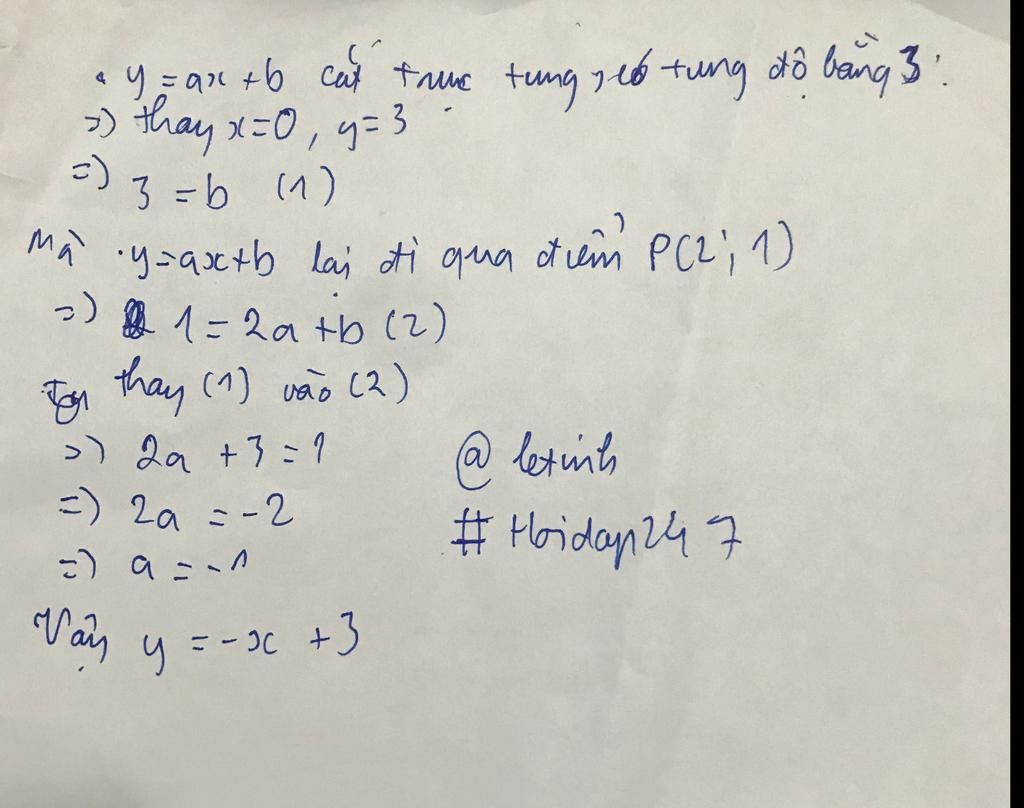 • y = ax + b cắt trục tung, có tung độ bằng 3:
=> thay x = 0, y = 3
=> 3 = b (1)
Mà • y = ax + b lại đi qua điểm P(2; 1)
=> 1 = 2a + b (2)
thay (1) vào (2)
=> 2a + 3 = 1
=> 2a = -2
=> a = -1
Vậy y = -x + 3
@ letinh
# Hoidap247